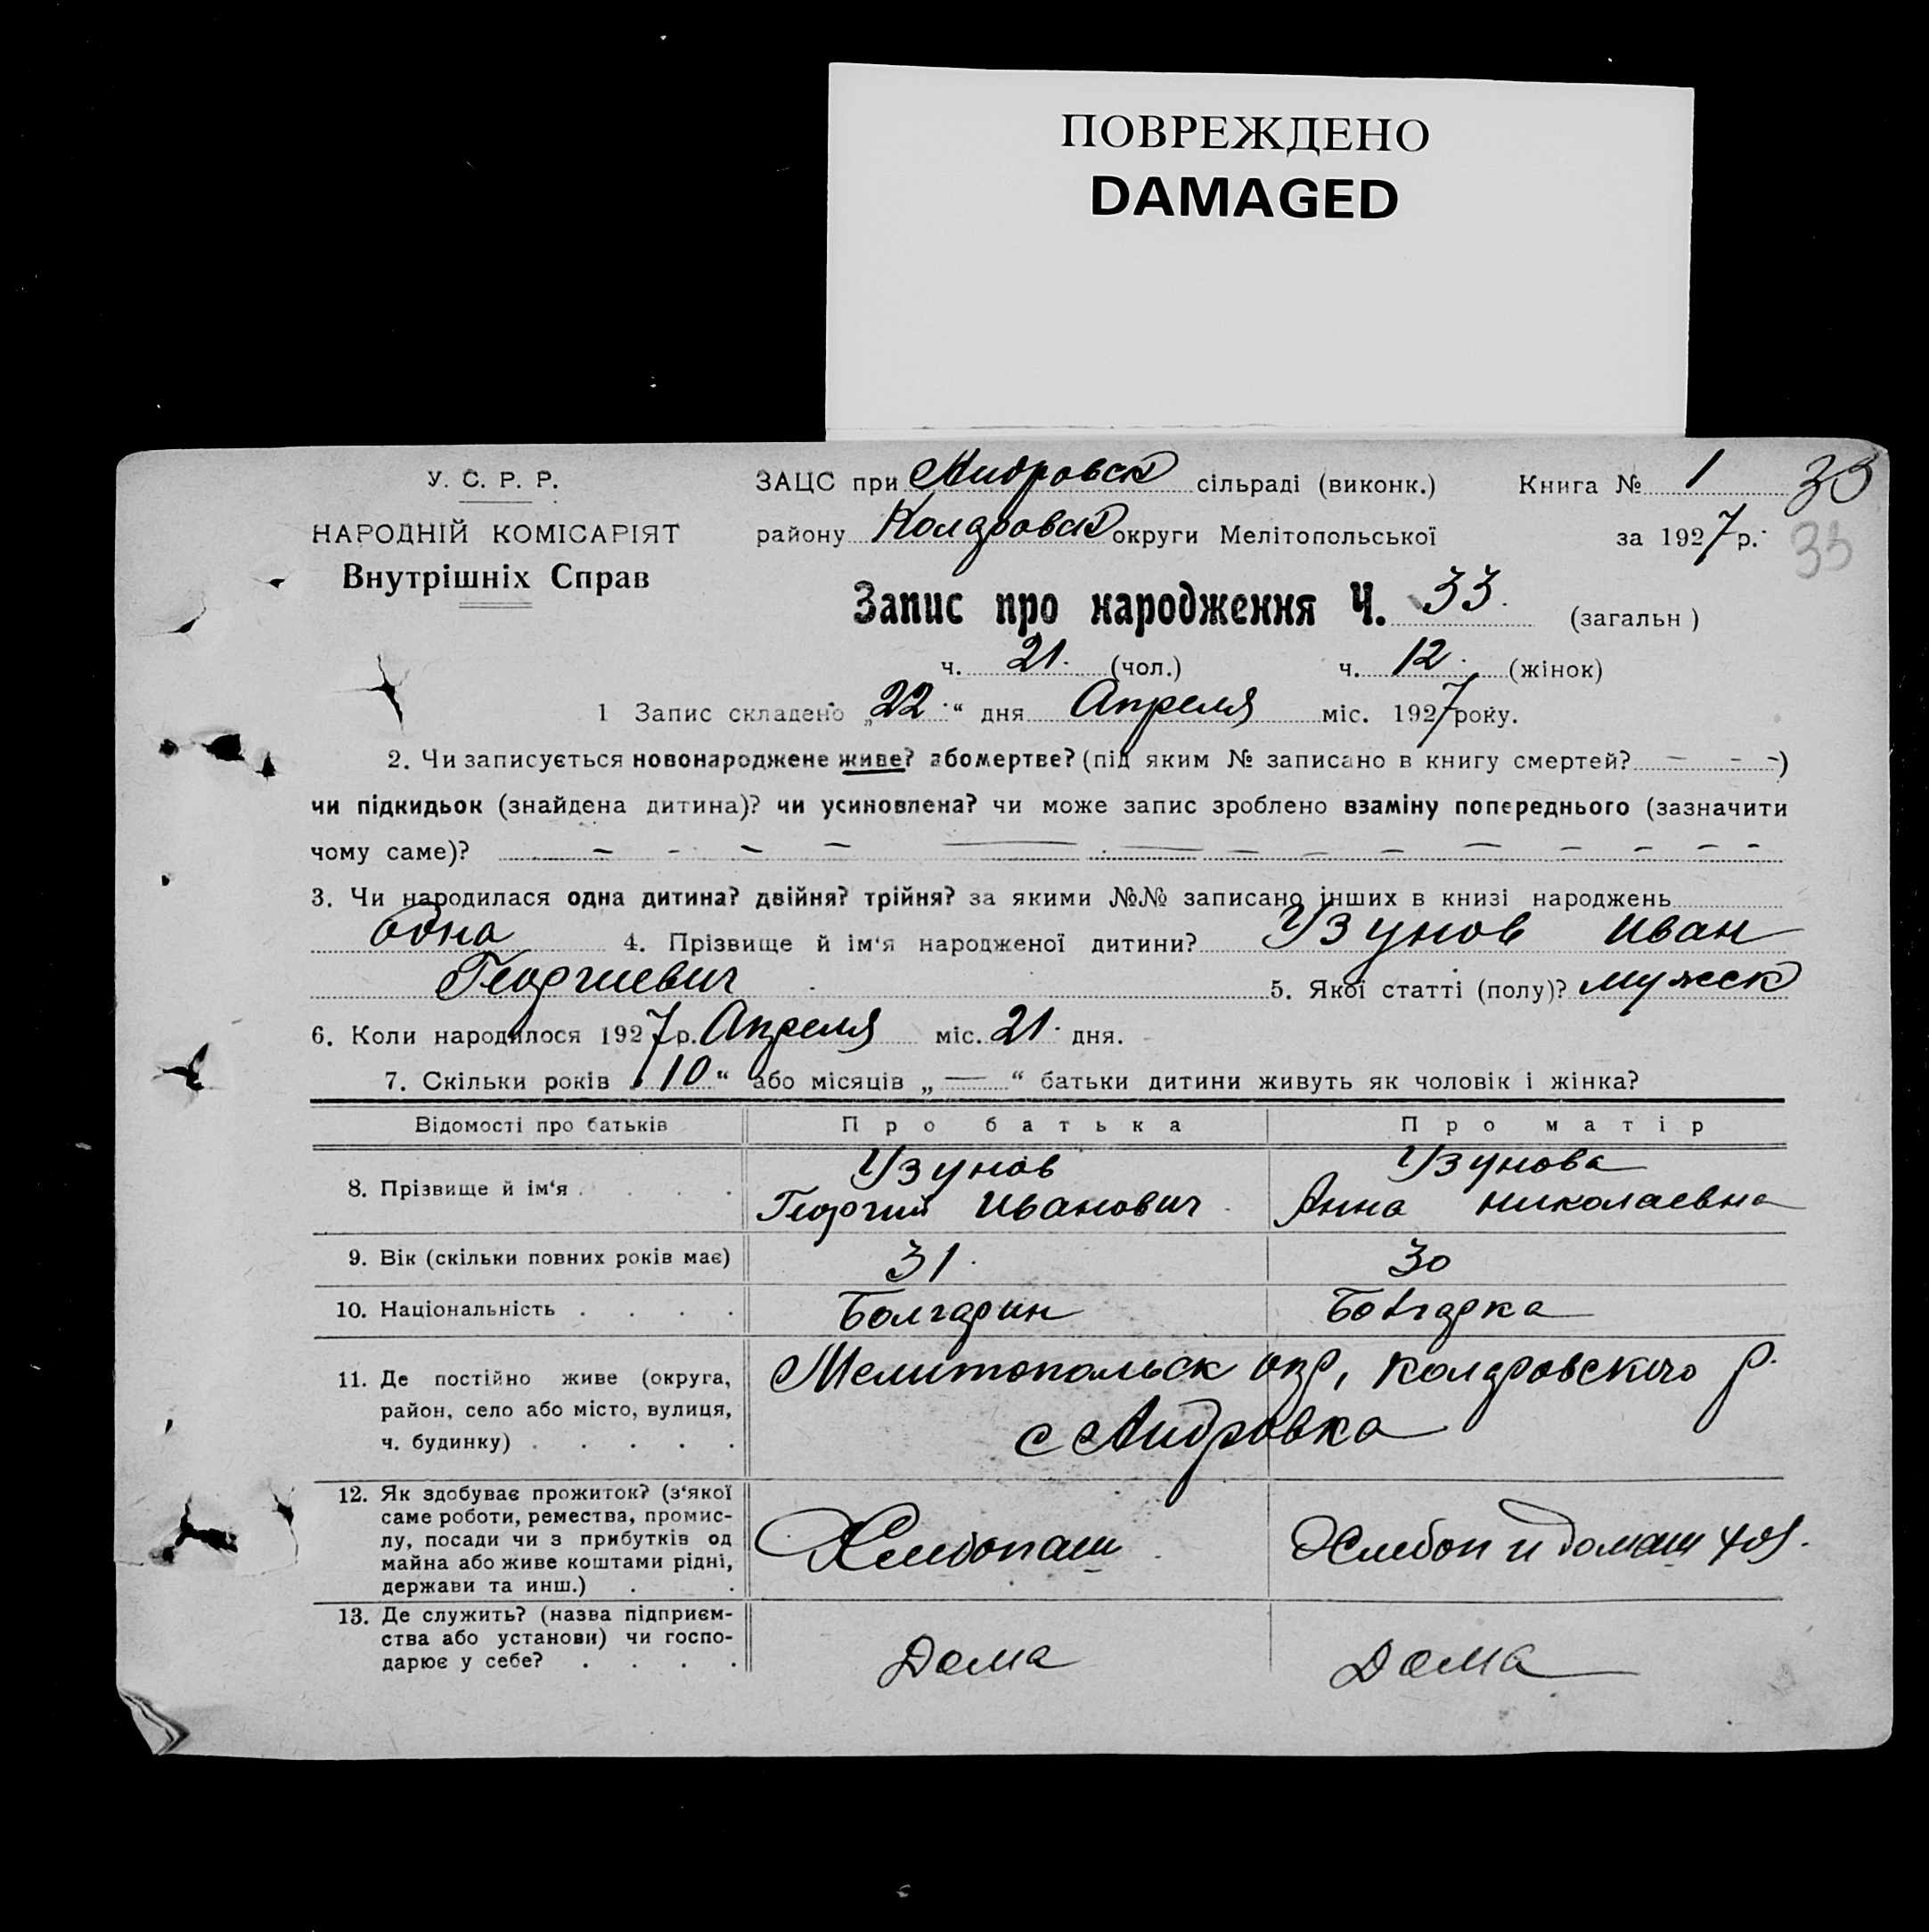 ПОВРЕЖДЕНО
DAMAGED
У. С. Р. Р.
НАРОДНІЙ КОМІСАРІЯТ
Внутрішніх Справ
ЗАЦС при Андровск сільраді (виконк.) Книга № 1 33
району Коларовск округи Мелітопольської за 1927 р. 33
Запис про народження Ч. 33. (загальн)
ч. 21. (чол.) ч. 12. (жінок)
1 Запис складено „22." дня Апреля міс. 1927 року.
2. Чи записується новонароджене живе? або мертве? (під яким № записано в книгу смертей? — - -)
чи підкидьок (знайдена дитина)? чи усиновлена? чи може запис зроблено взаміну попереднього (зазначити
чому саме)? — - — — — — — — — — — — - -
3. Чи народилася одна дитина? двійня? трійня? за якими №№ записано інших в книзі народжень
одна 4. Прізвище й ім'я народженої дитини? Узунов Иван
Георгиевич 5. Якої статті (полу)? мужск
6. Коли народилося 1927 р. Апреля міс. 21. дня.
7. Скільки років „10" або місяців „—" батьки дитини живуть як чоловік і жінка?
Відомості про батьків Про батька Про матір
8. Прізвище й ім'я . . . . Узунов Узунова
Георгий Иванович Анна Николаевна
9. Вік (скільки повних років має) 31. 30
10. Національність . . . . Болгарин Болгарка
11. Де постійно живе (округа, Мелитопольск окр, Коларовского р.
район, село або місто, вулиця,
ч. будинку) . . . . . с Андровка
12. Як здобуває прожиток? (з'якої
саме роботи, ремества, промис-
лу, посади чи з прибутків од
майна або живе коштами рідні, Хлебопаш. Хлебоп и домаш
держави та инш.) . .
13. Де служить? (назва підприєм-
ства або установи) чи госпо-
дарює у себе? . . . . Дома Дома